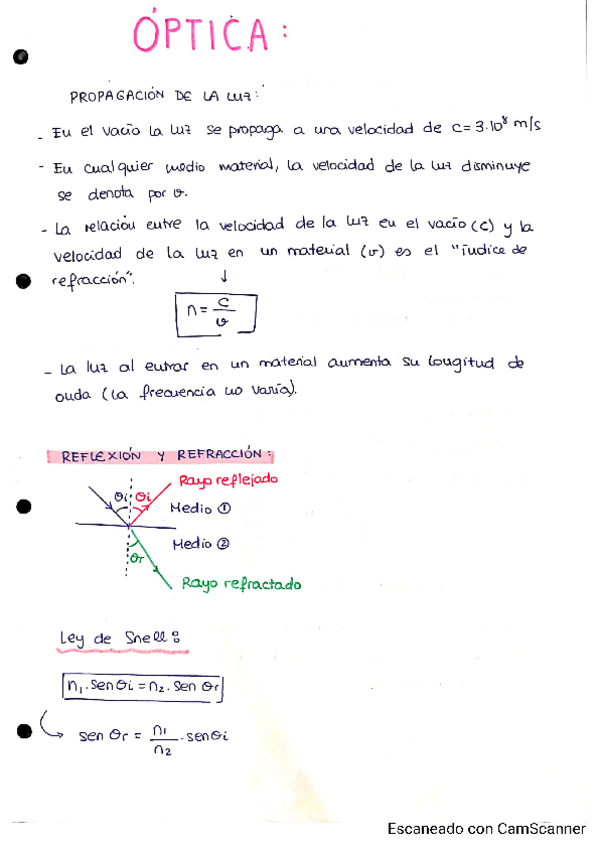 ÓPTICA:
PROPAGACIÓN DE LA LUZ:
- En el vacío la luz se propaga a una velocidad de c=3·10⁸ m/s
- En cualquier medio material, la velocidad de la luz disminuye
se denota por v.
- La relación entre la velocidad de la luz en el vacío (c) y la
velocidad de la luz en un material (v) es el "índice de
refracción".
↓
n = c/v
- La luz al entrar en un material aumenta su longitud de
onda (la frecuencia no varía).
REFLEXIÓN Y REFRACCIÓN:
Rayo reflejado
θi θi
Medio ①
Medio ②
θr
Rayo refractado
Ley de Snell:
n₁·senθi = n₂·sen θr
↪ sen θr = n₁/n₂ · senθi
Escaneado con CamScanner